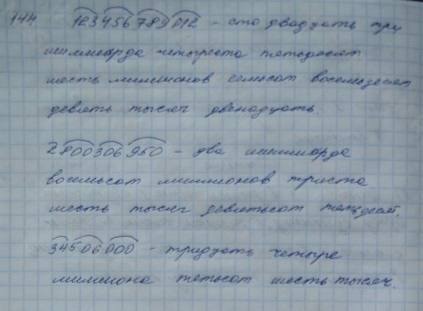 144 123456789012 - сто двадцать три
миллиарда четыреста пятьдесят
шесть миллионов семьсот восемьдесят
девять тысяч двенадцать.
2800306950 - два миллиарда
восемьсот миллионов триста
шесть тысяч девятьсот пятьдесят.
34506000 - тридцать четыре
миллиона пятьсот шесть тысяч.